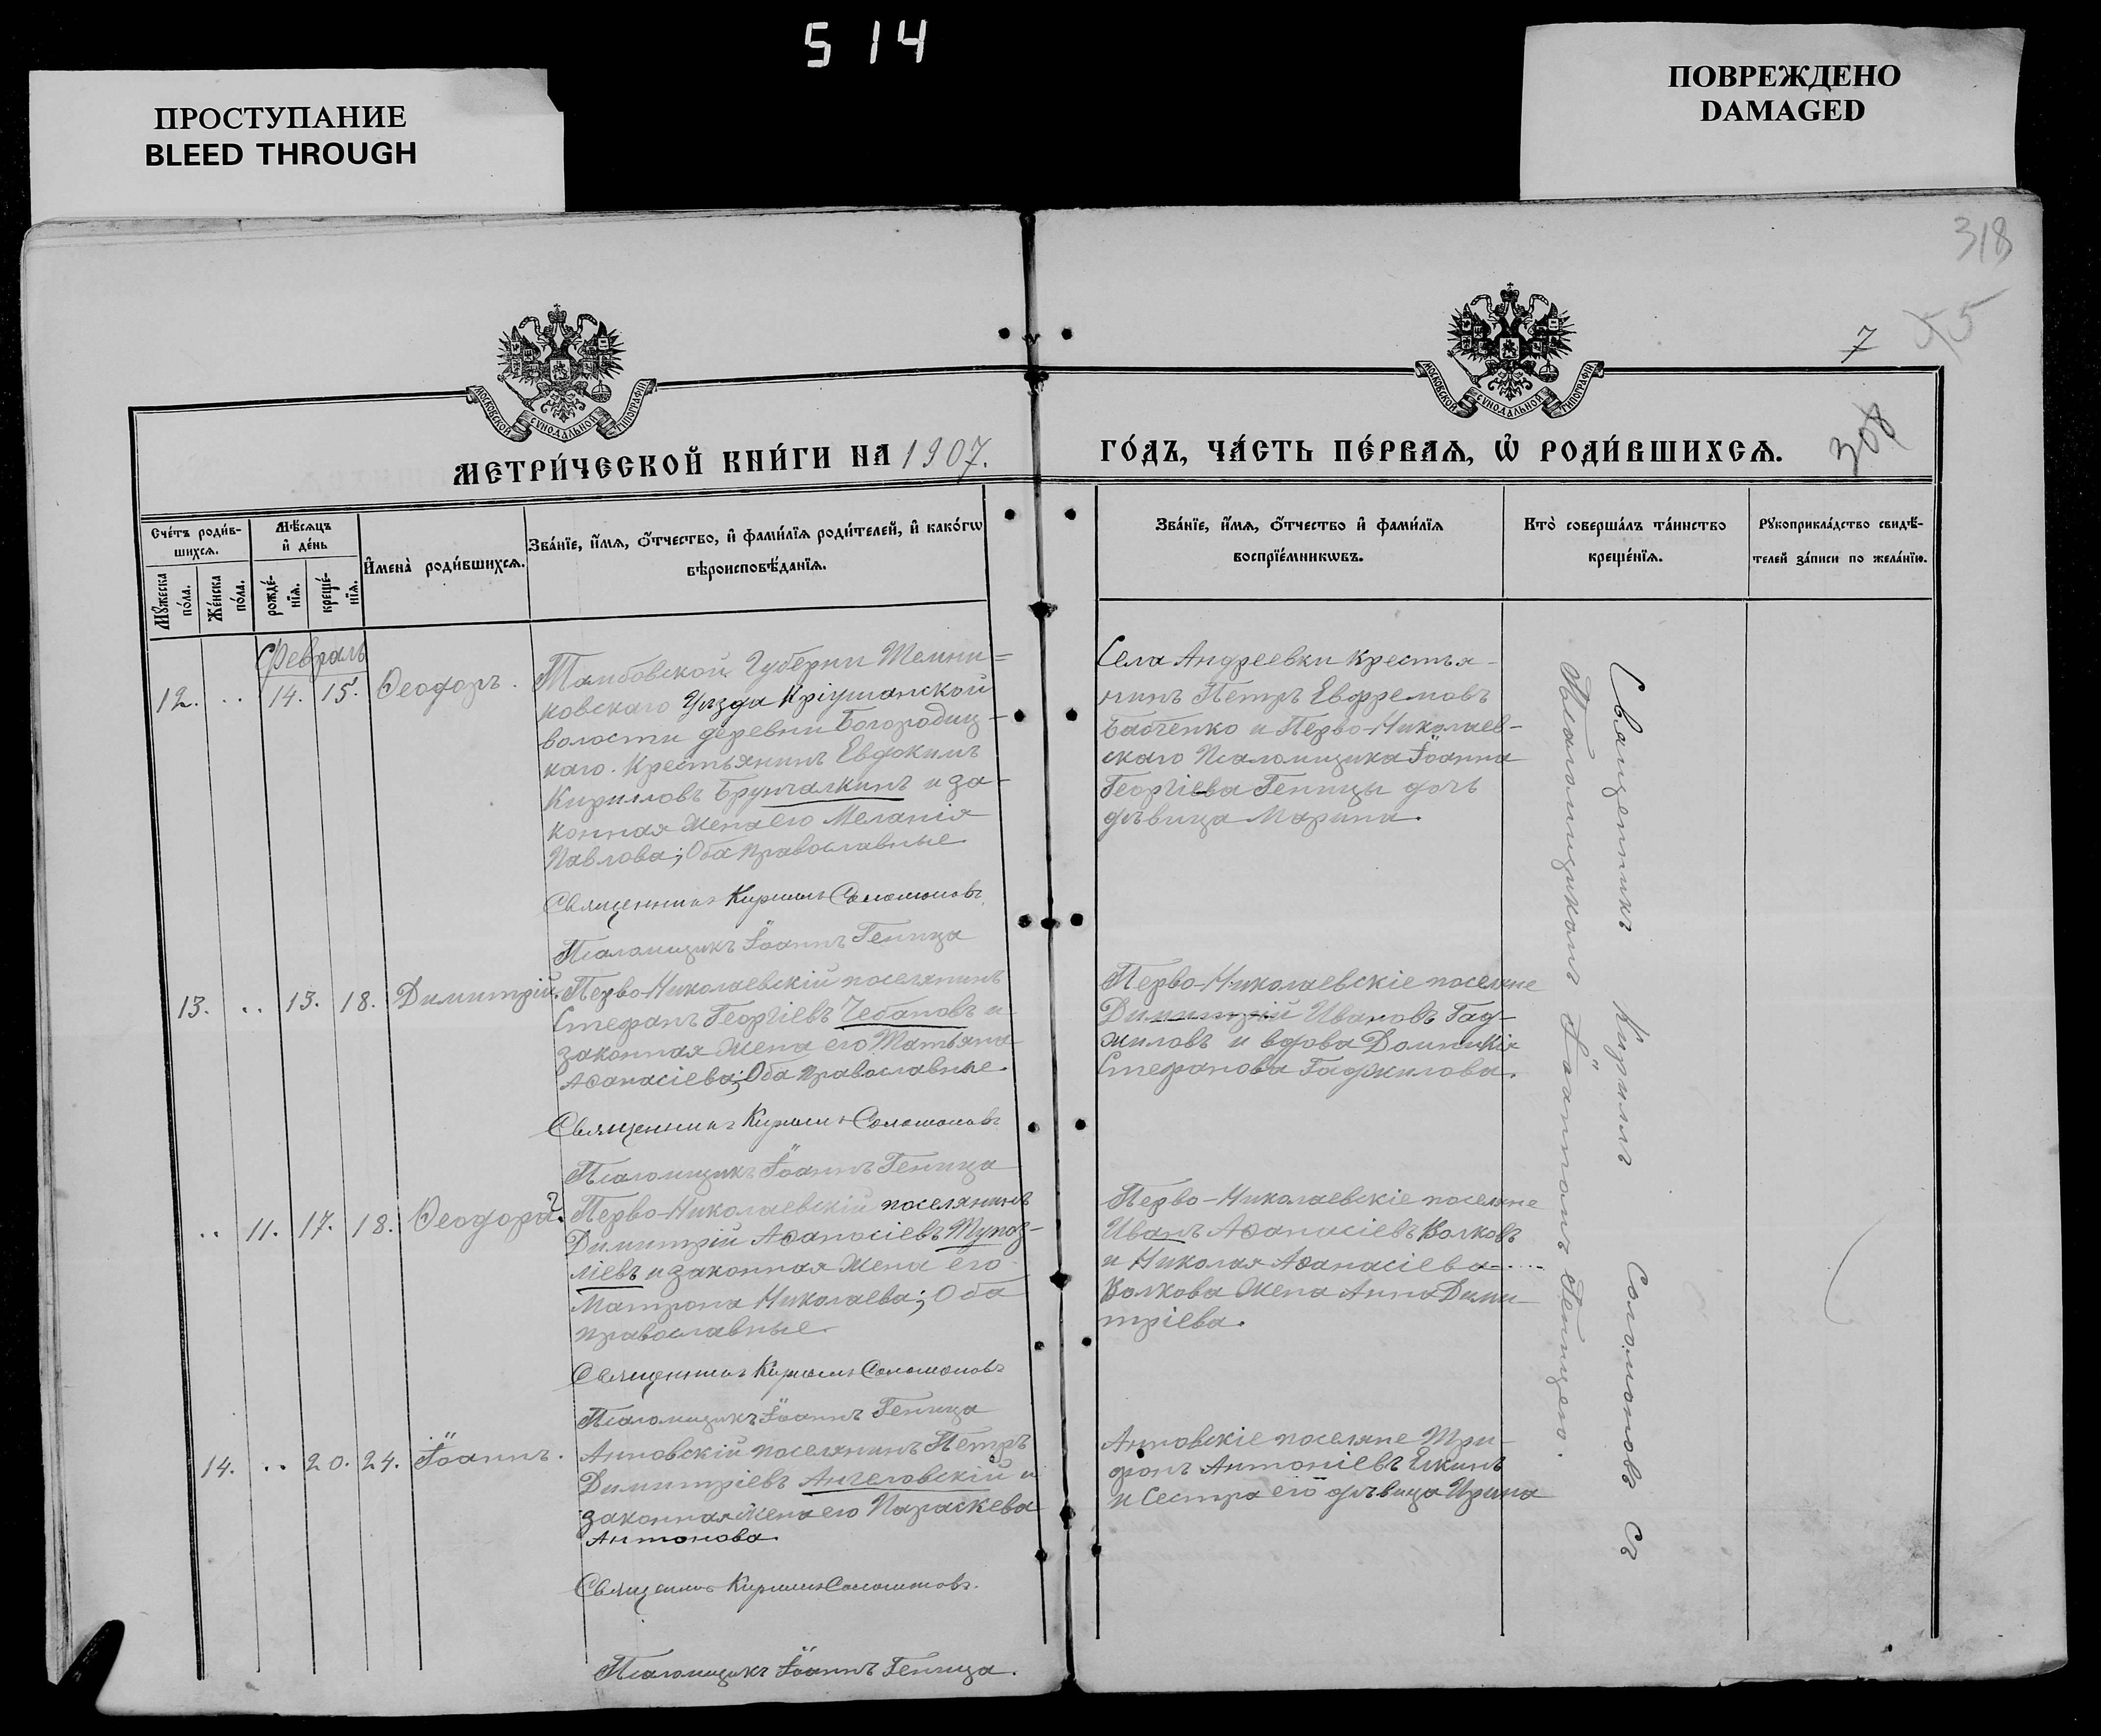 5 14
ПРОСТУПАНИЕ
BLEED THROUGH
ПОВРЕЖДЕНО
DAMAGED
318
55
7
308
МОСКОВСКОЙ СѴНОДАЛЬНОЙ ТИПОГРАФІИ
МОСКОВСКОЙ СѴНОДАЛЬНОЙ ТИПОГРАФІИ
МЕТРИ́ЧЕСКОЙ КНИ́ГИ НА 1907.
ГО́ДЪ, ЧА́СТЬ ПЕ́РВАѦ, Ѡ҆ РОДИ́ВШИХСѦ.
Сче́тъ роди́в-
шихсѧ.
Мѣ́сѧцъ
и҆ де́нь
Мꙋ́жеска
по́ла.
Же́нска
по́ла.
рожде́-
нїѧ.
креще́-
нїѧ.
И҆мена̀ роди́вшихсѧ.
Зва́нїе, и҆́мѧ, ѻ҆́тчество, и҆ фами́лїѧ роди́телей, и҆ како́гѡ
вѣроисповѣ́данїѧ.
Зва́нїе, и҆́мѧ, ѻ҆́тчество и҆ фами́лїѧ
воспрїе́мникѡвъ.
Кто̀ соверша́лъ та́инство
креще́нїѧ.
Рꙋкоприкла́дство свидѣ́-
телей за́писи по жела́нїю.
Февраль
12. .. 14. 15. Ѳеодоръ.
Тамбовской Губерни Темни=
ковскаго Уѣзда Кріушанской
волости деревни Богородиц-
каго. Крестьянинъ Евдокимъ
Кирилловъ Брунчалкинъ и за-
конная жена его Меланія
Павлова; Оба православные
Священникъ Кириллъ Соломоновъ
Псаломщикъ Іоаннъ Геница
Села Андреевки крестья-
нинъ Петръ Евфремовъ
Бабченко и Перво-Николаев-
скаго Псаломщика Іоанна
Георгіева Геницы дочь
дѣвица Марина.
13. .. 13. 18. Димитрій.
Перво-Николаевскій поселянинъ
Стефанъ Георгіевъ Чебановъ и
законная жена его Татьяна
Аѳанасіева; Оба православные.
Священникъ Кириллъ Соломоновъ
Псаломщикъ Іоаннъ Геница
Перво-Николаевскіе поселяне
Димитрій Ивановъ Гад-
жиловъ и вдова Домникія
Стефанова Гаджилова.
.. 11. 17. 18. Ѳеодора.
Перво-Николаевскій поселянинъ
Димитрій Аѳанасіевъ Тупоз-
ліевъ и законная жена его
Матрона Николаева; Оба
православные
Священникъ Кириллъ Соломоновъ
Псаломщикъ Іоаннъ Геница
Перво-Николаевскіе поселяне
Иванъ Аѳанасіевъ Волковъ
и Николая Аѳанасіева-....
Волкова жена Анна Дими-
тріева.
14. .. 20. 24. Іоаннъ.
Анновскій поселянинъ Петръ
Димитріевъ Ангеловскій и
законная жена его Параскева
Антонова
Священникъ Кириллъ Соломоновъ.
Псаломщикъ Іоаннъ Геница.
Анновскіе поселяне Три-
фонъ Антоніевъ Елкинъ
и сестра его дѣвица Ирина
Священникъ Кириллъ Соломоновъ съ
Псаломщикомъ Іоанномъ Геницею.